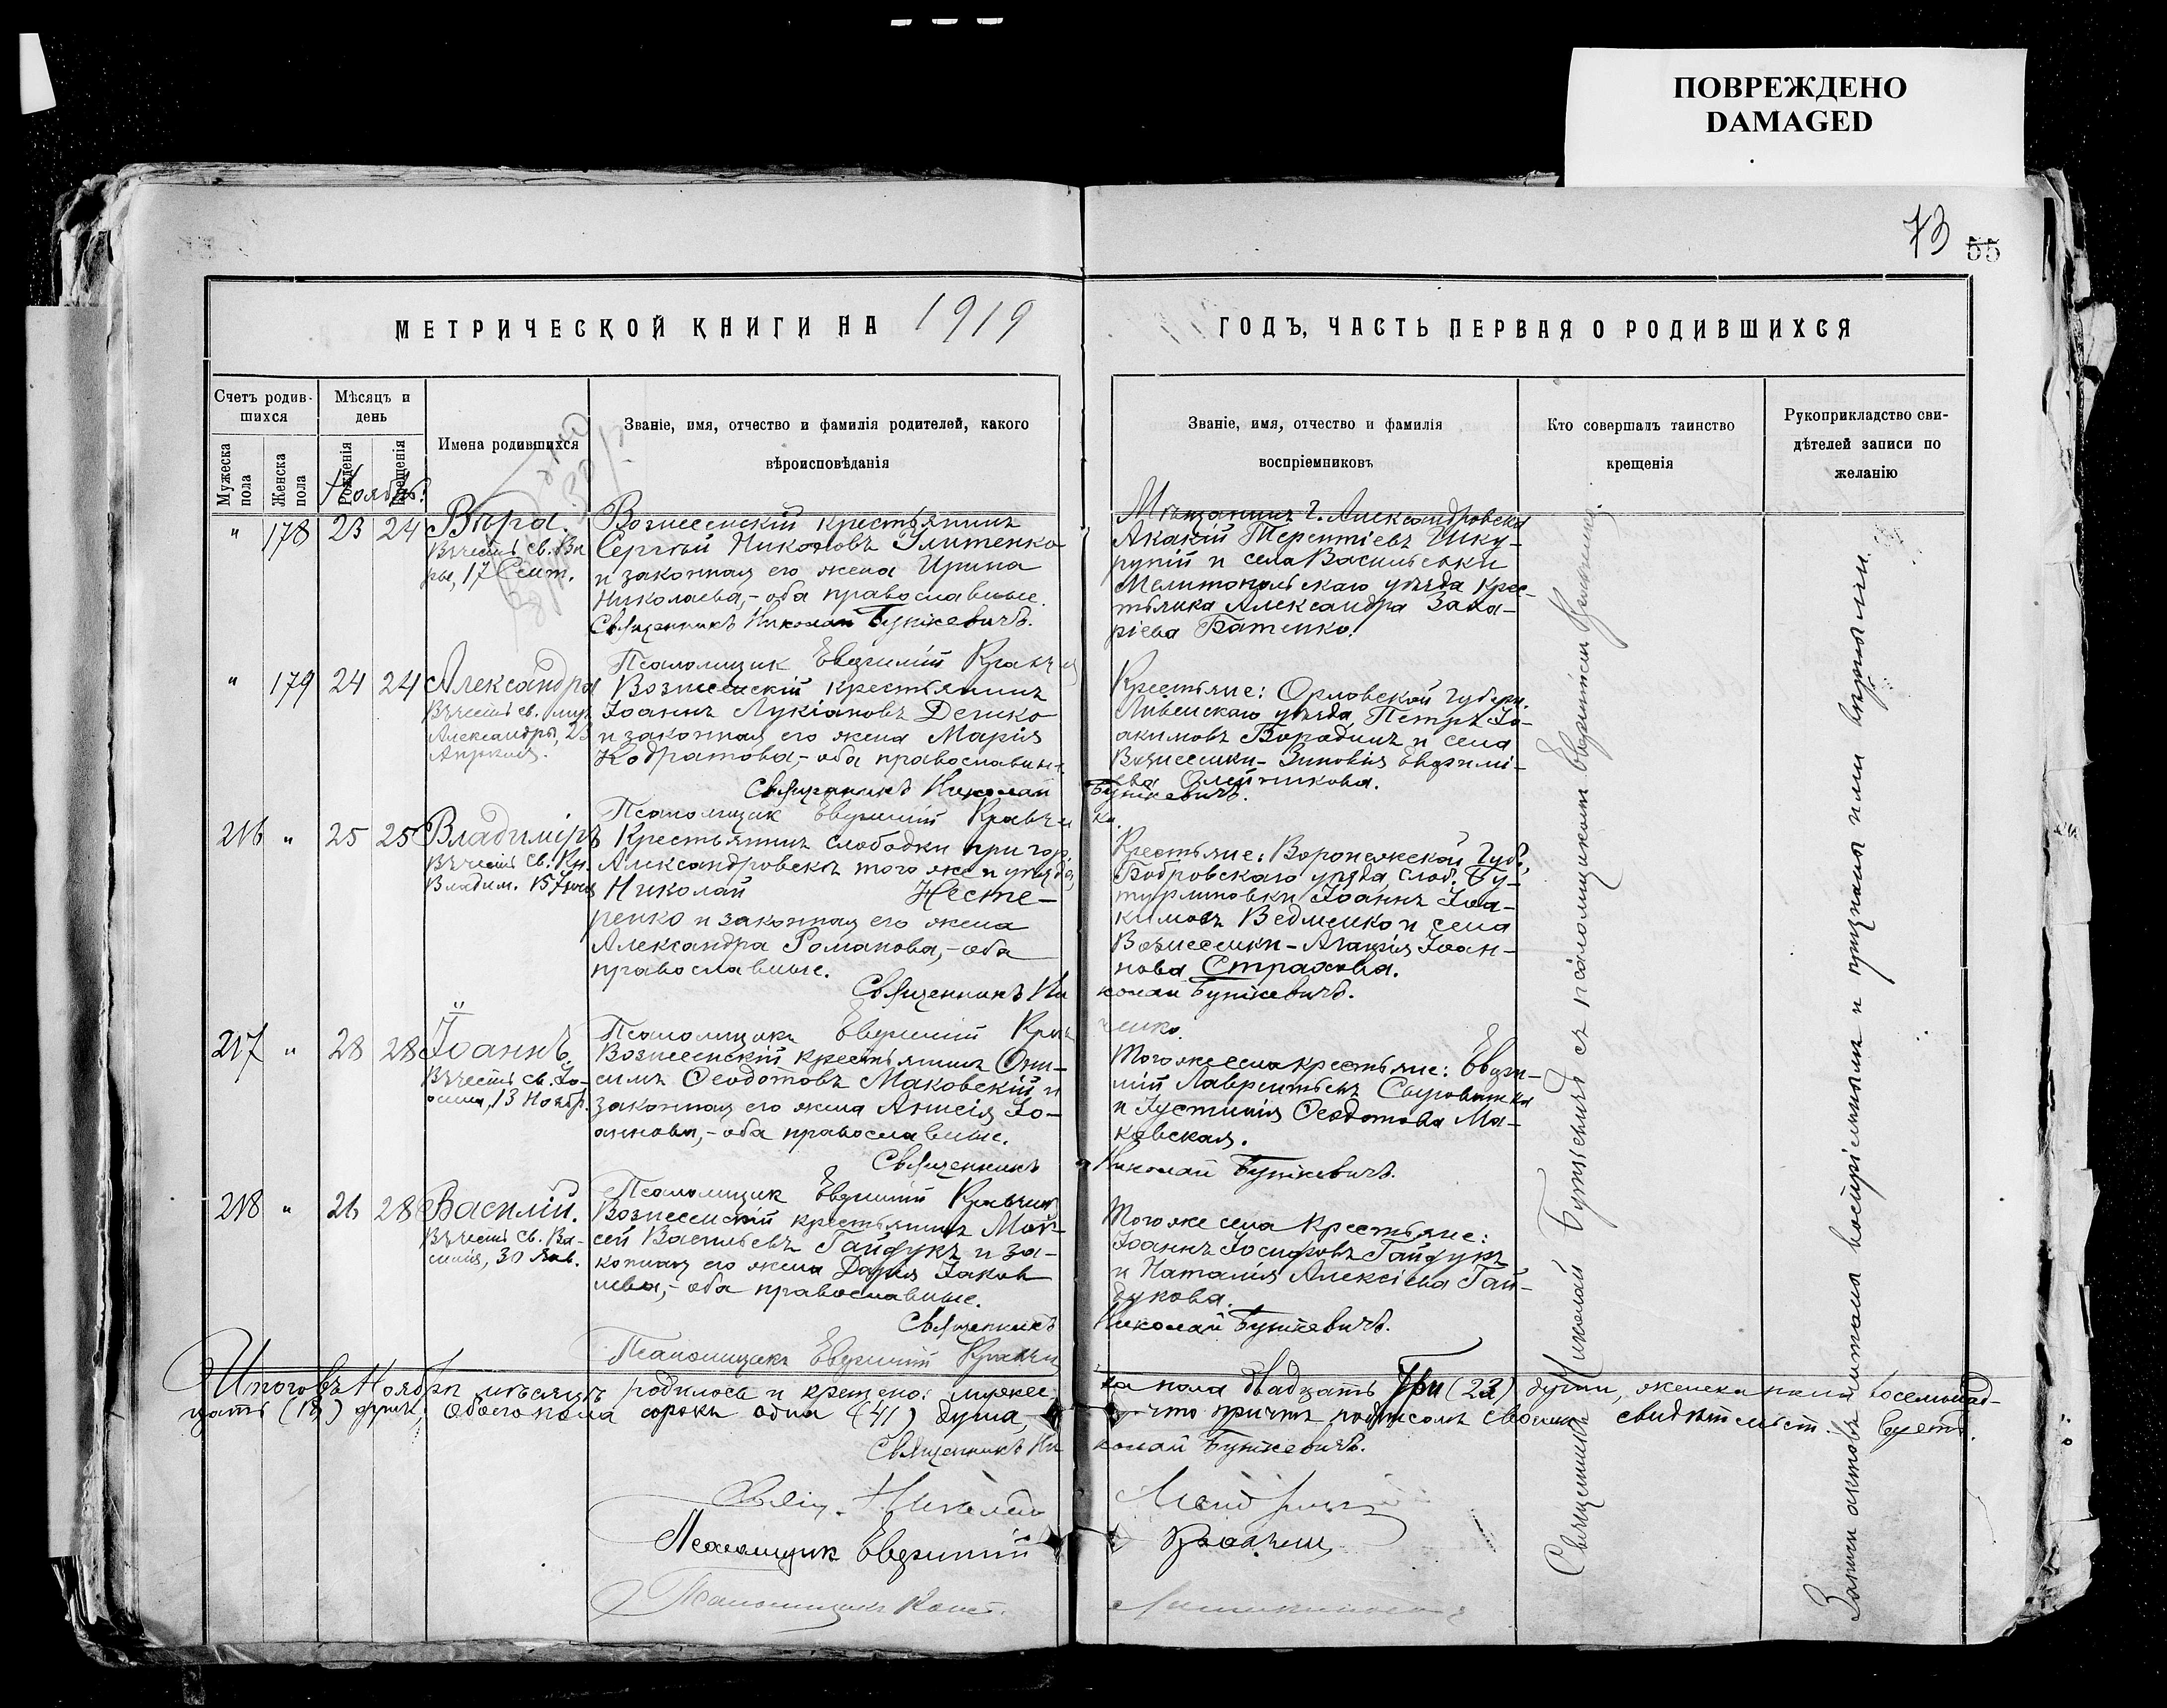 ПОВРЕЖДЕНО
DAMAGED
73 55
МЕТРИЧЕСКОЙ КНИГИ НА 1919
ГОДЪ, ЧАСТЬ ПЕРВАЯ О РОДИВШИХСЯ
Счетъ родив-
шихся
Мужеска пола
Женска пола
Мѣсяцъ и
день
Рожденія
Крещенія
Имена родившихся
Званіе, имя, отчество и фамилія родителей, какого
вѣроисповѣданія
Званіе, имя, отчество и фамилія
воспріемниковъ
Кто совершалъ таинство
крещенія
Рукоприкладство сви-
дѣтелей записи по
желанію
Ноябрь.
" 178 23 24 Вѣра.
Въ честь св. Вѣ
ры, 17 Сент.
Вознесенскій крестьянинъ
Сергѣй Никоновъ
и законная его жена Ирина
Николаева,- оба православные.
Священникъ Николай Буткевичъ.
Псаломщик Евфимій
Мѣщанинъ г. Александровска
Акакій Терентіевъ Шку-
рупій и села Васильевки
Мелитопольскаго уѣзда крес-
тьянка Александра Заха-
ріева Батенко.
" 179 24 24 Александра
Въ честь св. муч.
Александры, 23
Апрѣля.
Вознесенскій крестьянинъ
Іоаннъ Лукіановъ Дешко
и законная его жена Марія
Кодратова,- оба православные
Священникъ Николай
Буткевичъ.
Псаломщик Евфимій Кравчен
ко.
Крестьяне: Орловской губерн.
Ливенскаго уѣзда Петръ Іо-
акимовъ Бородинъ и села
Вознесенки- Зиновія Евфимі-
ева Олейникова.
216 " 25 25 Владиміръ
Въ честь св. Кн.
Владим. 15 Іюля
Крестьянинъ слободки при гор.
Александровскѣ того же и уѣзда,
Николай Несте-
ренко и законная его жена
Александра Романова,- оба
православные.
Священникъ Ни
колай Буткевичъ.
Крестьяне: Воронежской губ.
Бобровскаго уѣзда слоб. Бу-
турлиновки Іоаннъ Іоа-
кимовъ Ведменко и села
Вознесенки- Агафія Іоан-
нова Страхова.
217 " 28 28 Іоаннъ.
Въ честь св. Іо-
анна, 13 Ноябр.
Псаломщикъ Евфимій Крав
ченко.
Вознесенскій крестьянинъ Они-
симъ Ѳеодотовъ Маковскій и
законная его жена Анисія Іо-
аннова,- оба православные.
Священникъ
Николай Буткевичъ.
Того же села крестьяне: Евфи-
мій Лаврентьевъ Сыроватка
и Іустинія Ѳеодотова Ма-
ковская.
218 " 26 28 Василій.
Въ честь св. Ва-
силія, 30 Янв.
Псаломщик Евфимій Кравченко
Вознесенскій крестьянинъ Мои-
сей Васильевъ Гайдукъ и за-
конная его жена Дарія Іаков
лева,- оба православные.
Священникъ
Николай Буткевичъ.
Псаломщикъ Евфимій Кравчен
Того же села крестьяне:
Іоаннъ Іосифовъ Гайдукъ
и Наталія Алексіева Гай-
дукова.
Итого въ Ноябрѣ мѣсяцѣ родилось и крещено: мужес
ка пола двадцать три (23) души, женска пола восемнад-
цать (18) душъ, обоего пола сорокъ одна (41) душа,
что причтъ подписомъ своимъ свидѣтельст- вуетъ.
Священникъ Ни
колай Буткевичъ.
Свящ. Николай
Псаломщик Евфимій Кравченко
Псаломщикъ Конст.
Священникъ Николай Буткевичъ съ псаломщикомъ Евфиміемъ Кравченко.
Записи актовъ читала воспріемникамъ и признали ихъ вѣрными.